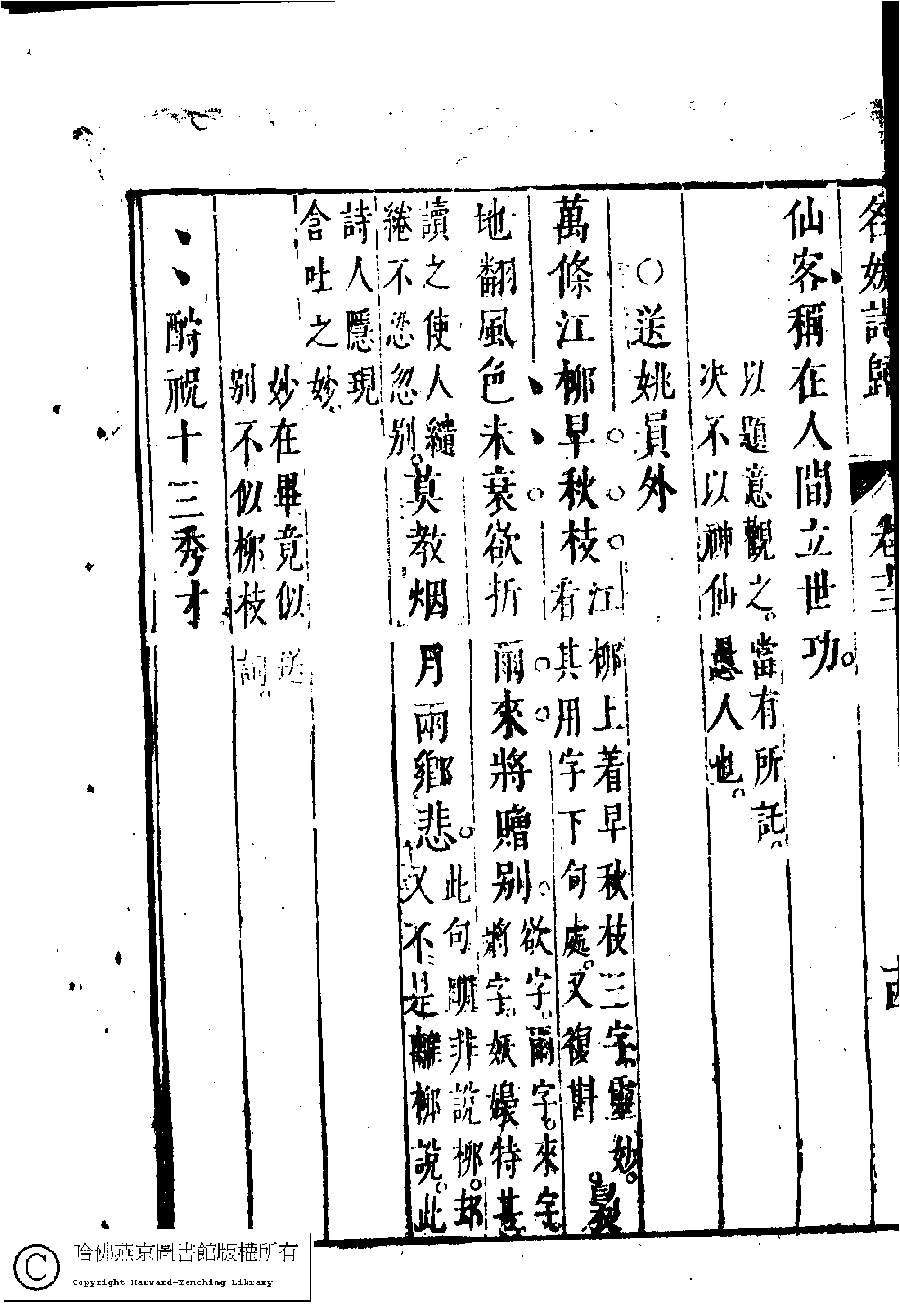 名媛詩歸 卷十二
仙客稱在人間立世功。
以題意觀之。當有所託。
决不以神仙愚人也。
○送姚員外
萬條江柳早秋枝
江柳上着早秋枝三字靈妙。
看其用字下句處。又復斟
地翻風色未衰欲折爾來將贈别。
欲字。爾字。來字
將字。妖嬝特甚
讀之使人繾
綣不忍忽别。
莫教烟月兩鄉悲。
此句明非說柳。却
又不是離柳說。此
詩人隱現
含吐之妙。
妙在畢竟似送
别不似柳枝詞。
酧祝十三秀才
哈佛燕京圖書館版權所有
Copyright Harvard-Yenching Library